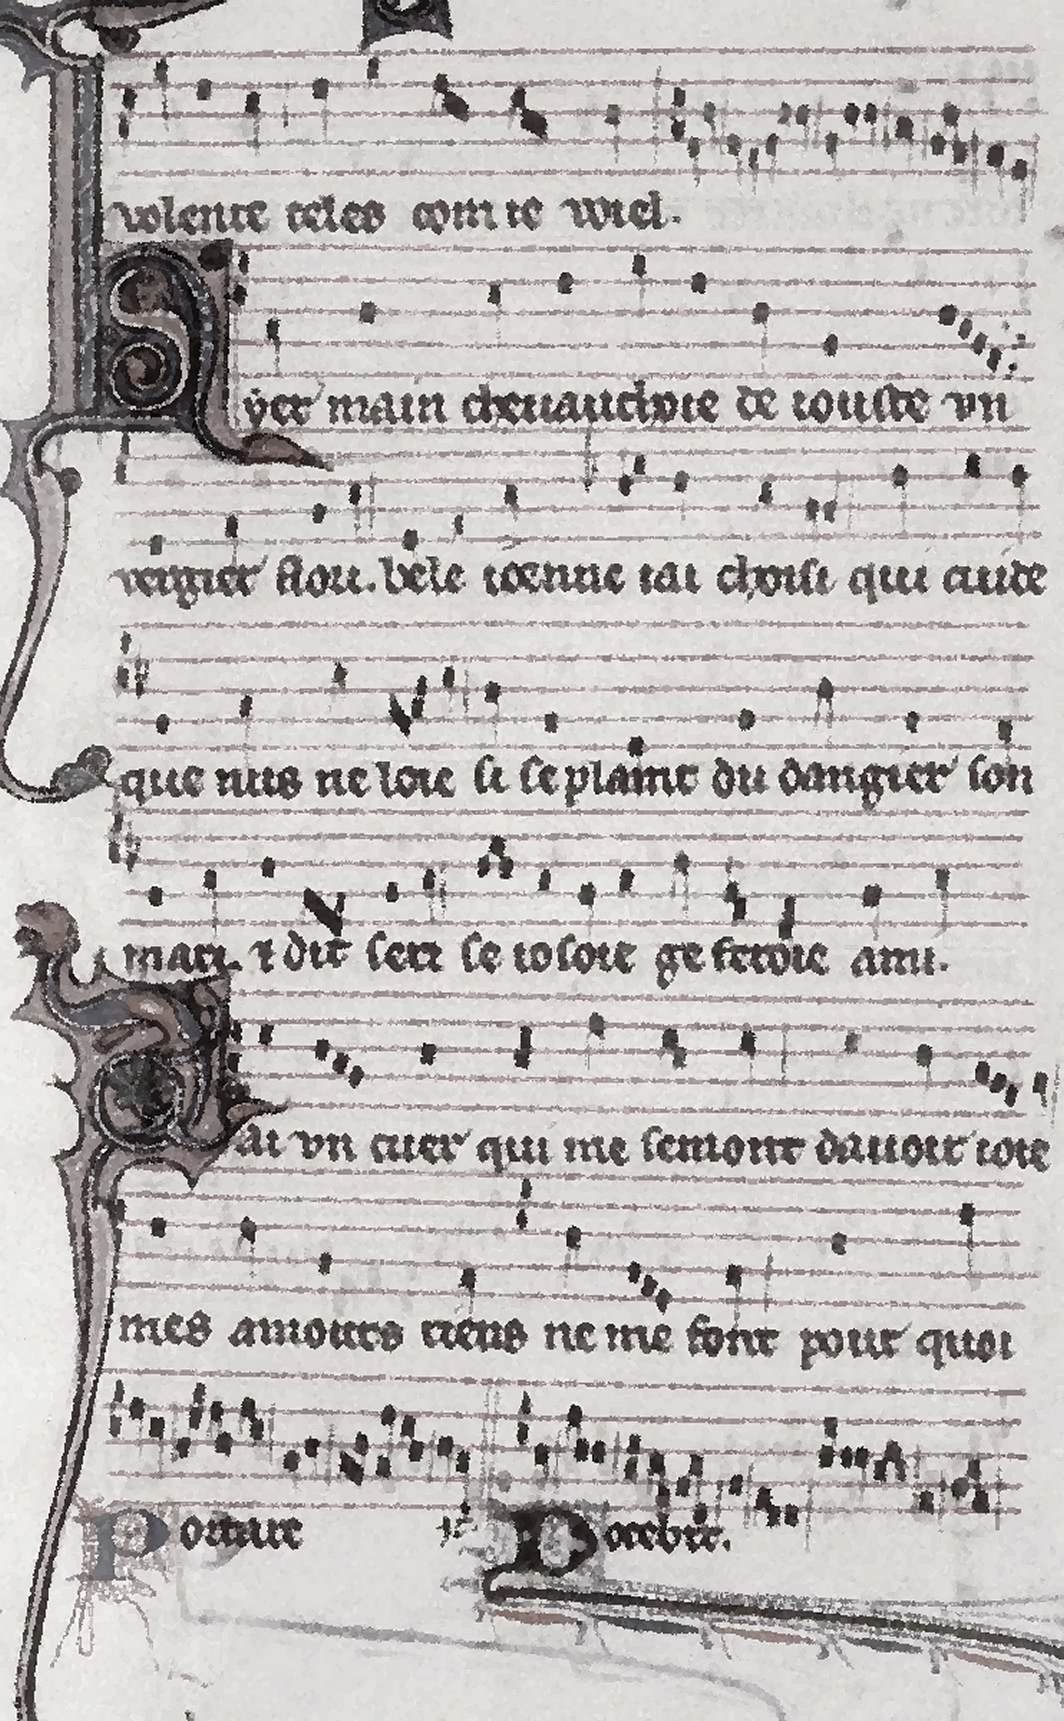 volente teles com ie wiel.
Hyer main cheuauchoie de iouste vn
vergier flori. bele ioenne iai choisi qui cuide
que nus ne loie si se plaint du dangier son
mari. ⁊ dit seri se iosoie ge feroie ami.
Iai vn cuer qui me semont dauoir ioie
mes amours riens ne me font pour quoi
Portare Docebit.